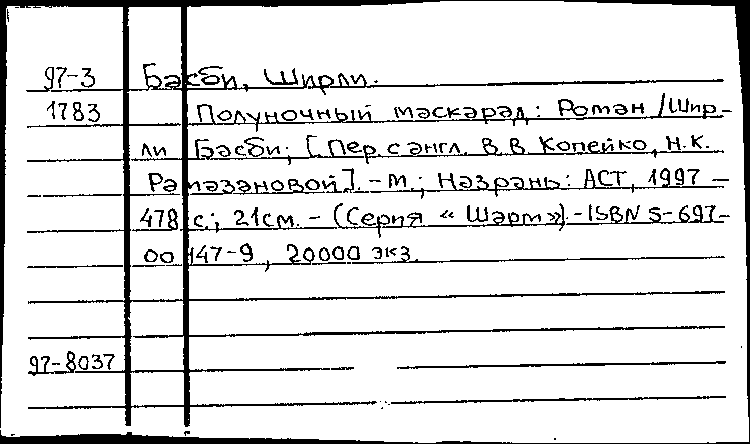 97-3 Басби, Ширли.
1783 Полуночный маскарад: Роман / Шир-
ли Басби; [Пер. с англ. В. В Копейко, Н.К.
Рамазановой]. - М.; Назрань: АСТ, 1997 -
478 с.; 21 см. - (Серия « Шарм»).-ISBN 5-697-
00147-9, 20000 экз.
97-8037